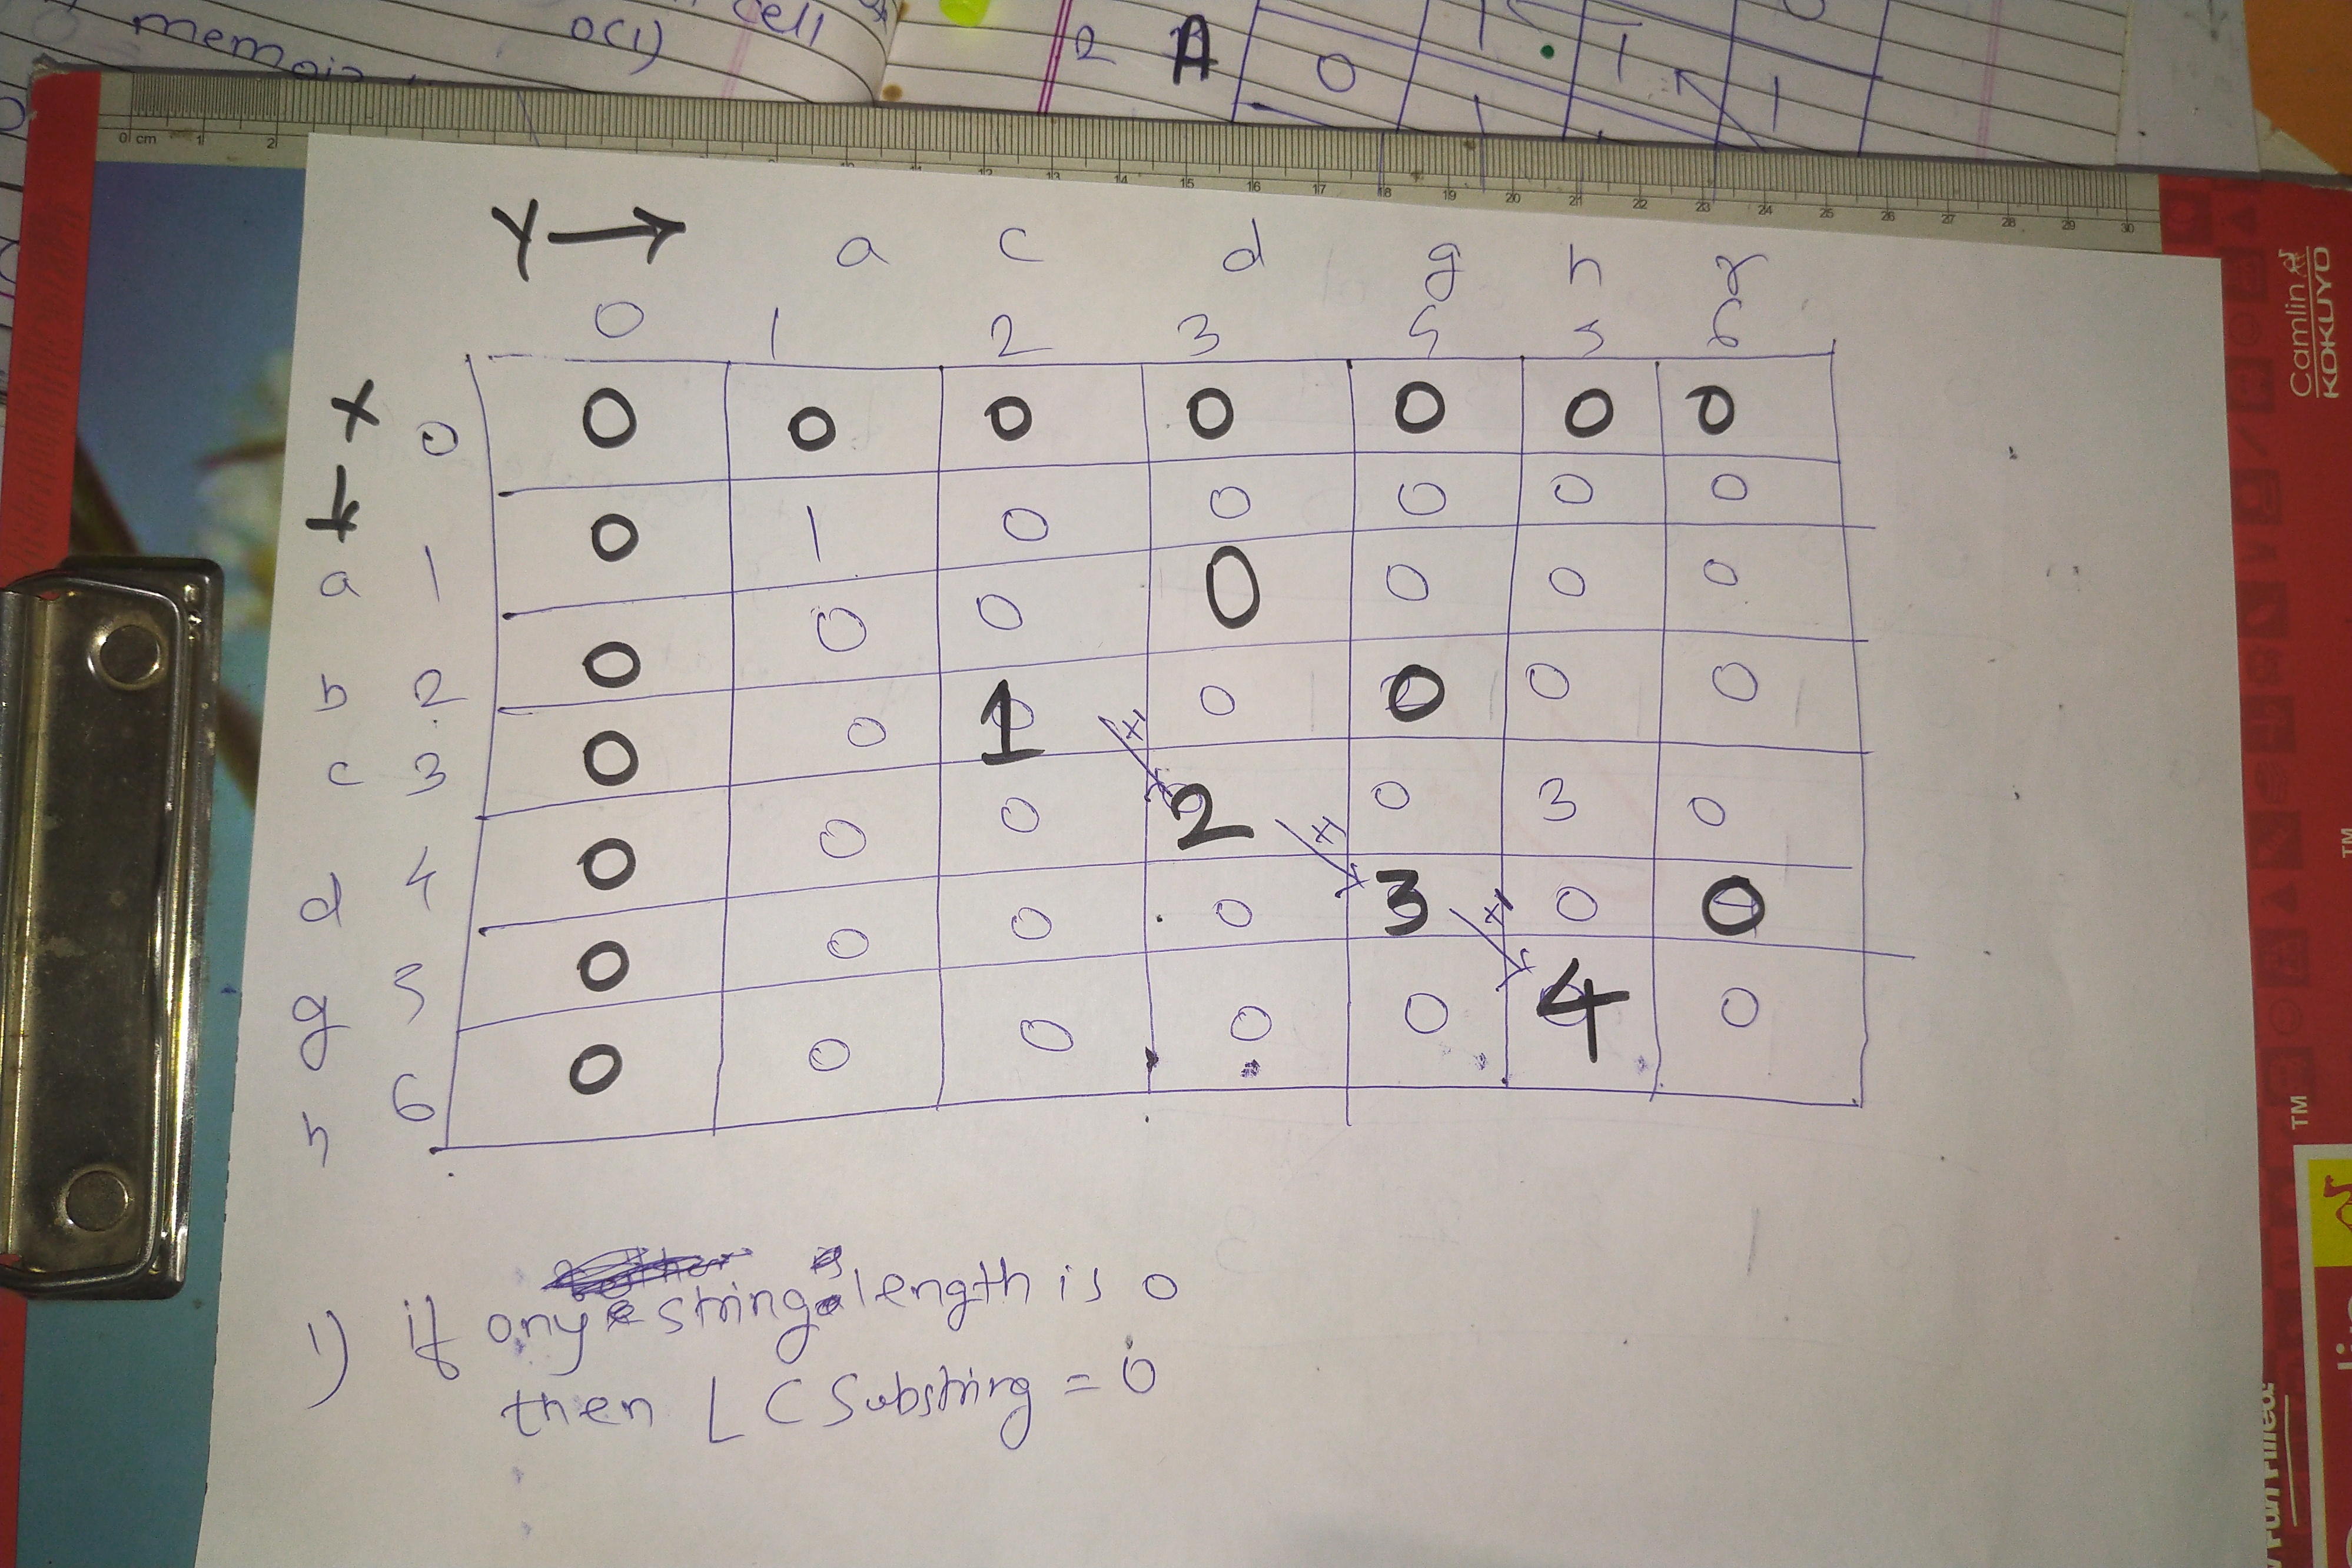 cell
memoiz
O(1)
2 A 0 1 1 1
0 cm 1 2 11 12 13 14 15 16 17 18 19 20 21 22 23 24 25 26 27 28 29 30
Camlin
KOKUYO
Y → a c d g h r
0 1 2 3 5 5 6
X 0 0 0 0 0 0 0 0
a 1 0 1 0 0 0 0 0
b 2 0 0 0 0 0 0 0
c 3 0 0 1 0 0 0 0
d 4 0 0 0 2 0 3 0
g 5 0 0 0 0 3 0 0
h 6 0 0 0 0 0 4 0
+1
+1
+1
1) if any string length is 0
then LC Substring = 0
TM
TM
Fun Filled!